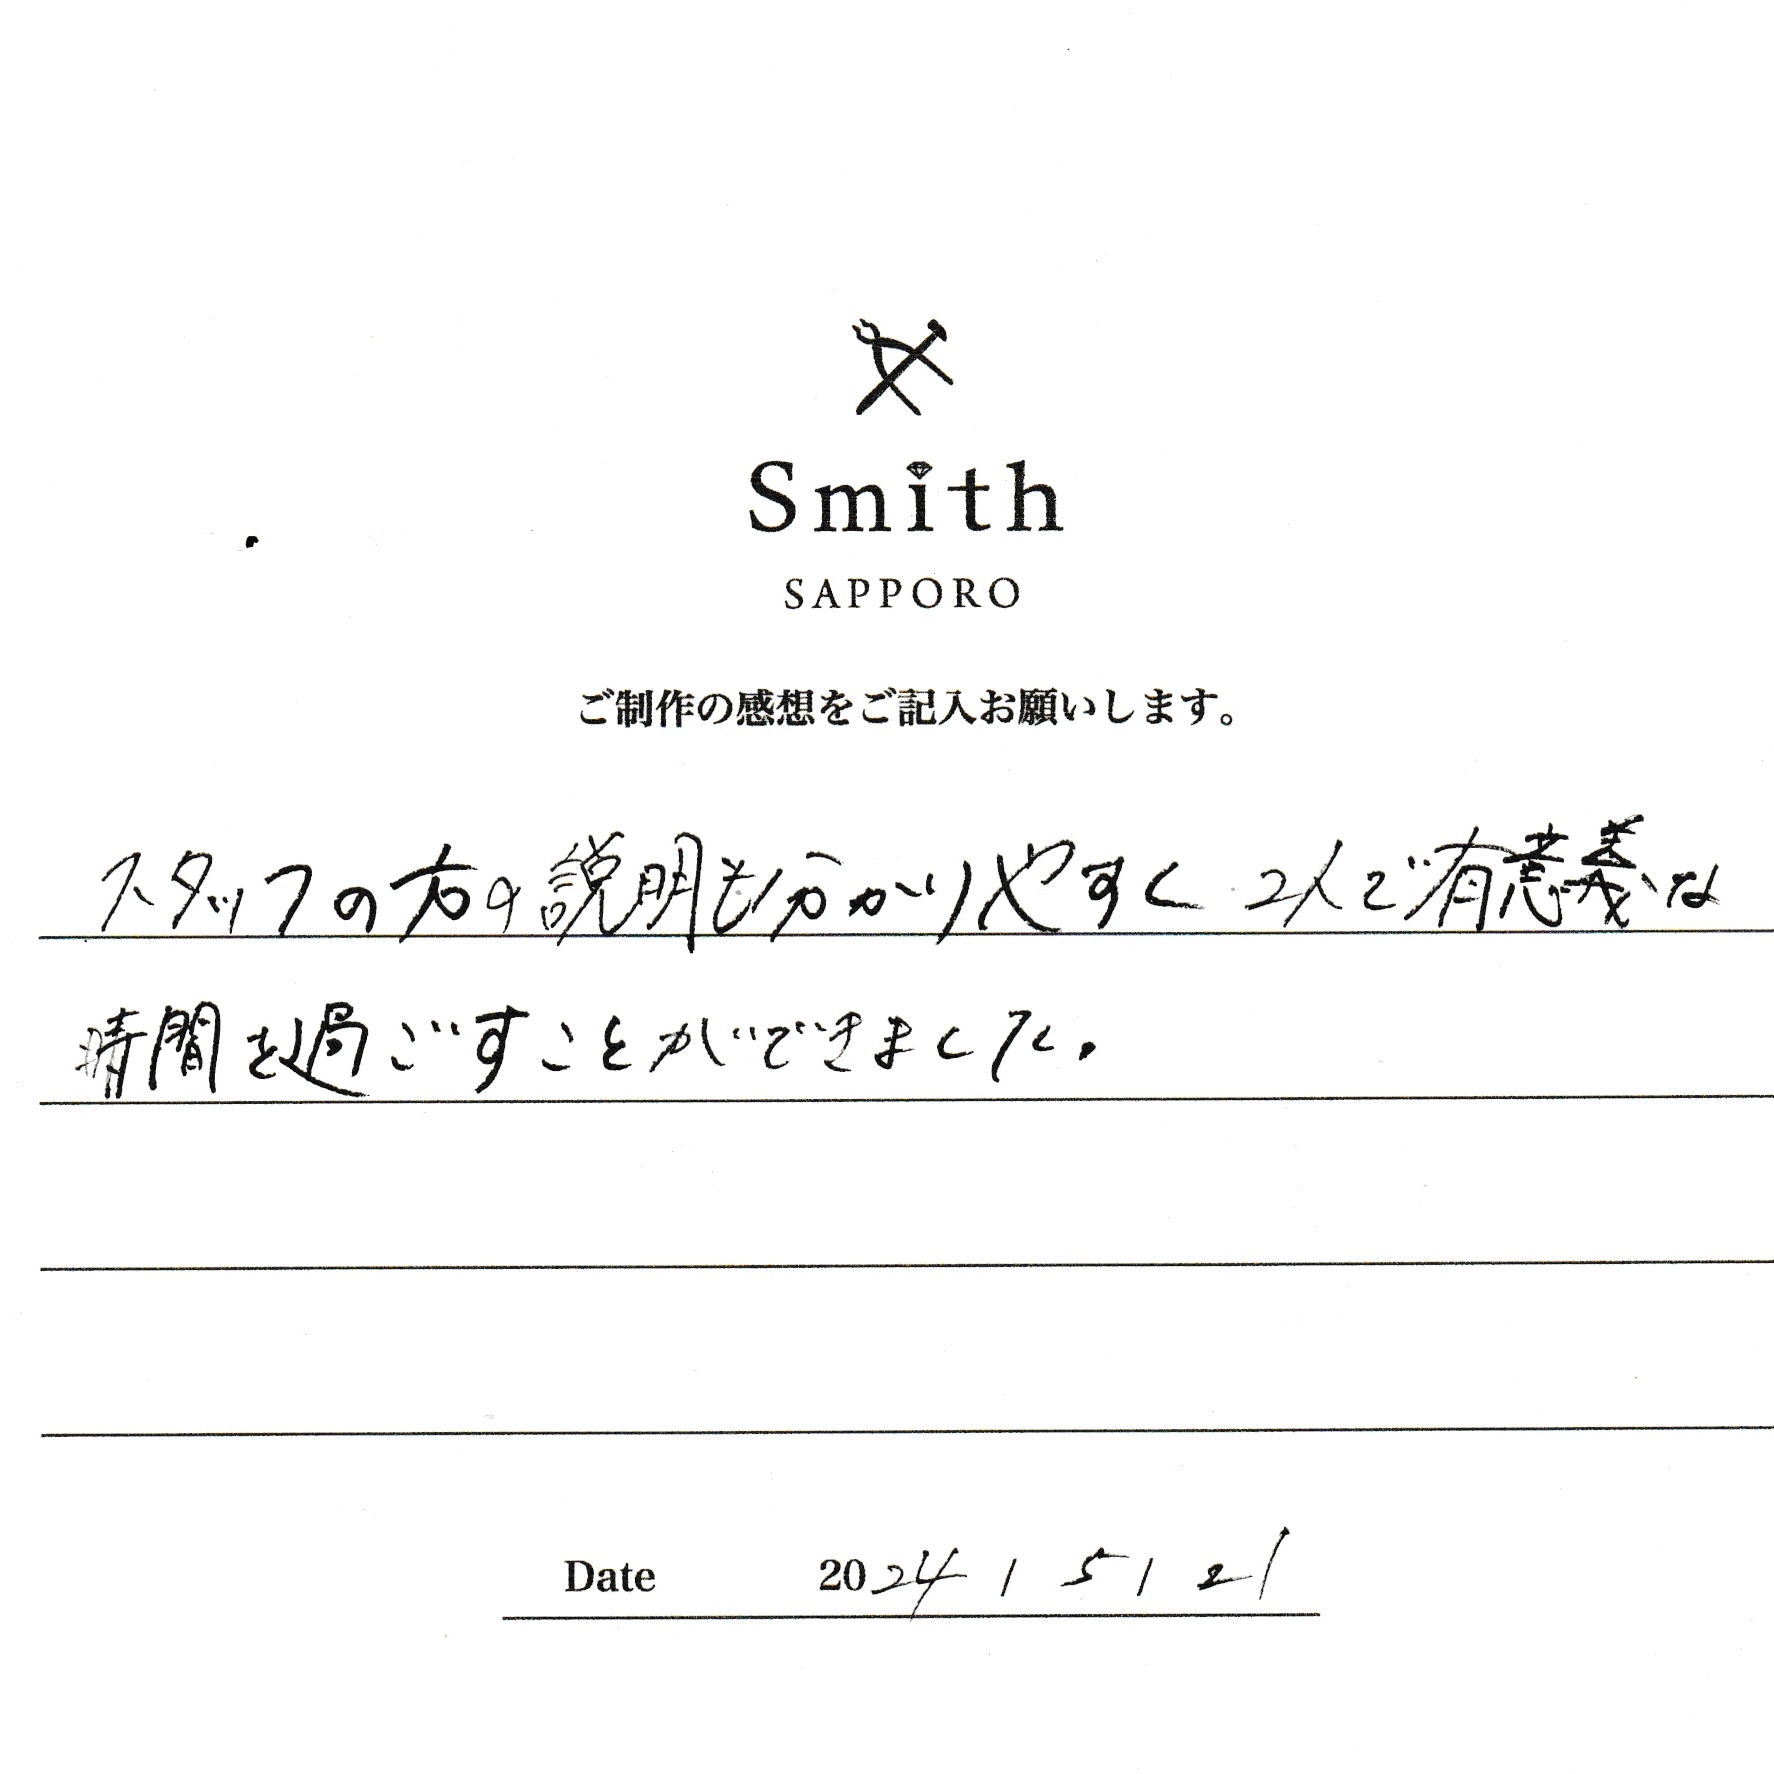 Smith
SAPPORO
ご制作の感想をご記入お願いします。
スタッフの方の説明も分かりやすく 2人で有意義な
時間を過ごすことができました。
Date 2024 / 5 / 21